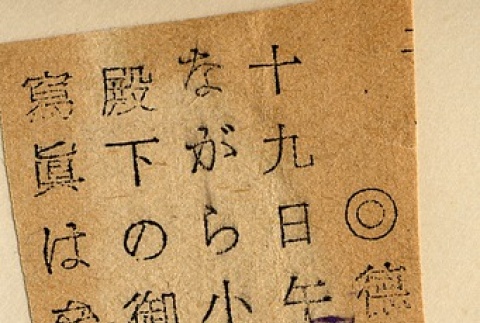 ◎德
十九日午
ながら小
殿下の御
寫眞は